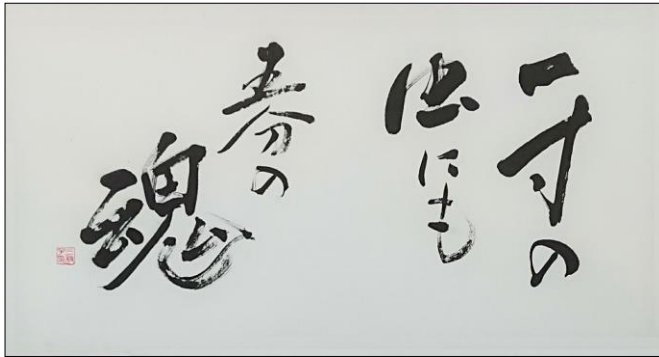 一寸の
虫にも
五分の
魂